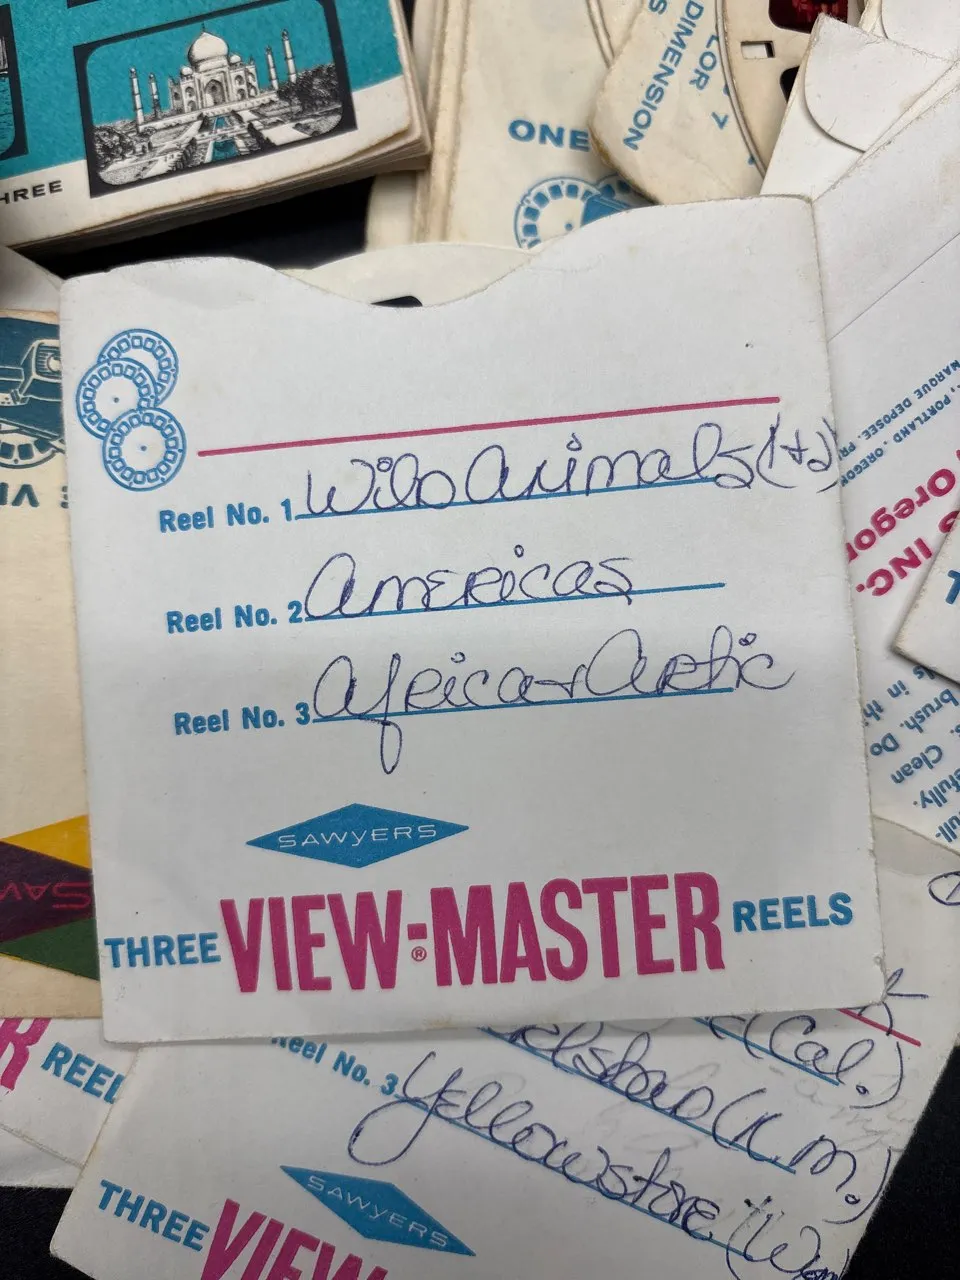 THREE
ONE
COLOR
DIMENSION
7
MARQUE DEPOSEE,
, PORTLAND , OREGON
Oregon
INC.
Reel No. 1 Wild Animals (1+2)
Reel No. 2 Americas
Reel No. 3 Africa + Artic
SAWYERS
THREE VIEW-MASTER® REELS
(Cal.)
(N.M.)
Reel No. 3 Yellowstone
SAWYERS
THREE VIEW
REEL
brush. Do
Clean